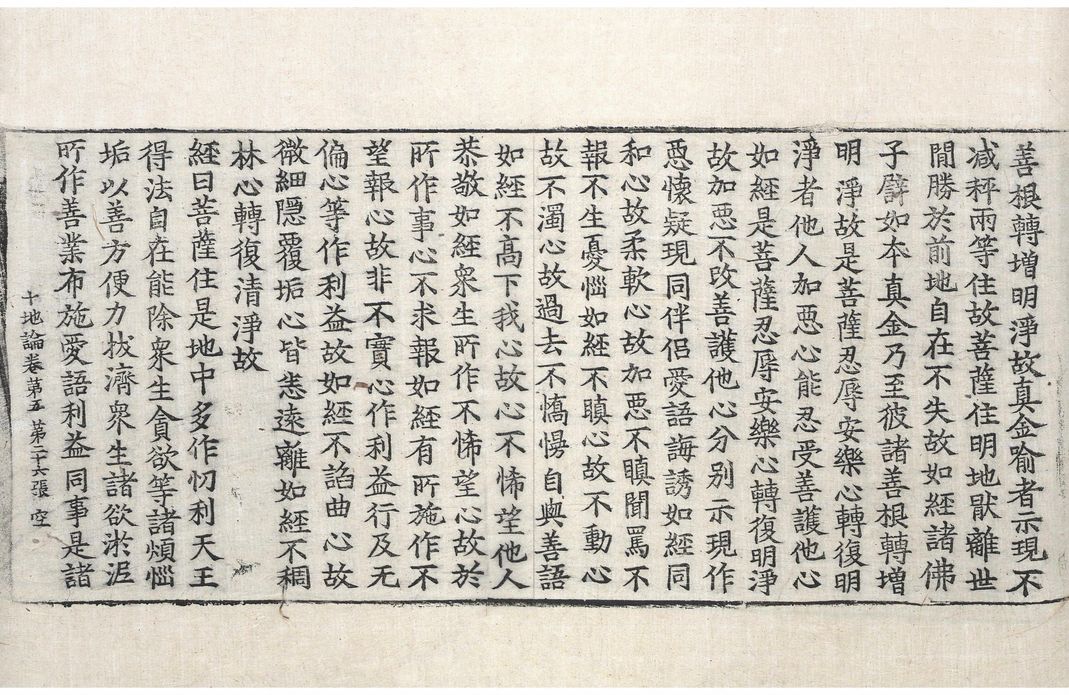 善根轉增明淨故真金喻者示現不
减秤兩等住故菩薩住明地猒離世
閒勝於前地自在不失故如經諸佛
子譬如本真金乃至彼諸善根轉增
明淨故是菩薩忍辱安樂心轉復明
淨者他人加惡心能忍受善護他心
如經是菩薩忍辱安樂心轉復明淨
故加惡不改善護他心分別示現作
惡懷疑現同伴侶愛語誨誘如經同
和心故柔軟心故加惡不瞋聞罵不
報不生憂惱如經不瞋心故不動心
故不濁心故過去不憍慢自與善語
如經不高下我心故心不悕望他人
恭敬如經衆生所作不悕望心故於
所作事心不求報如經有所施作不
望報心故非不實心作利益行及无
偏心等作利益故如經不諂曲心故
微細隱覆垢心皆悉遠離如經不稠
林心轉復清淨故
經曰菩薩住是地中多作忉利天王
得法自在能除衆生貪欲等諸煩惱
垢以善方便力拔濟衆生諸欲淤泥
所作善業布施愛語利益同事是諸
十地論卷第五 第二十六張 空